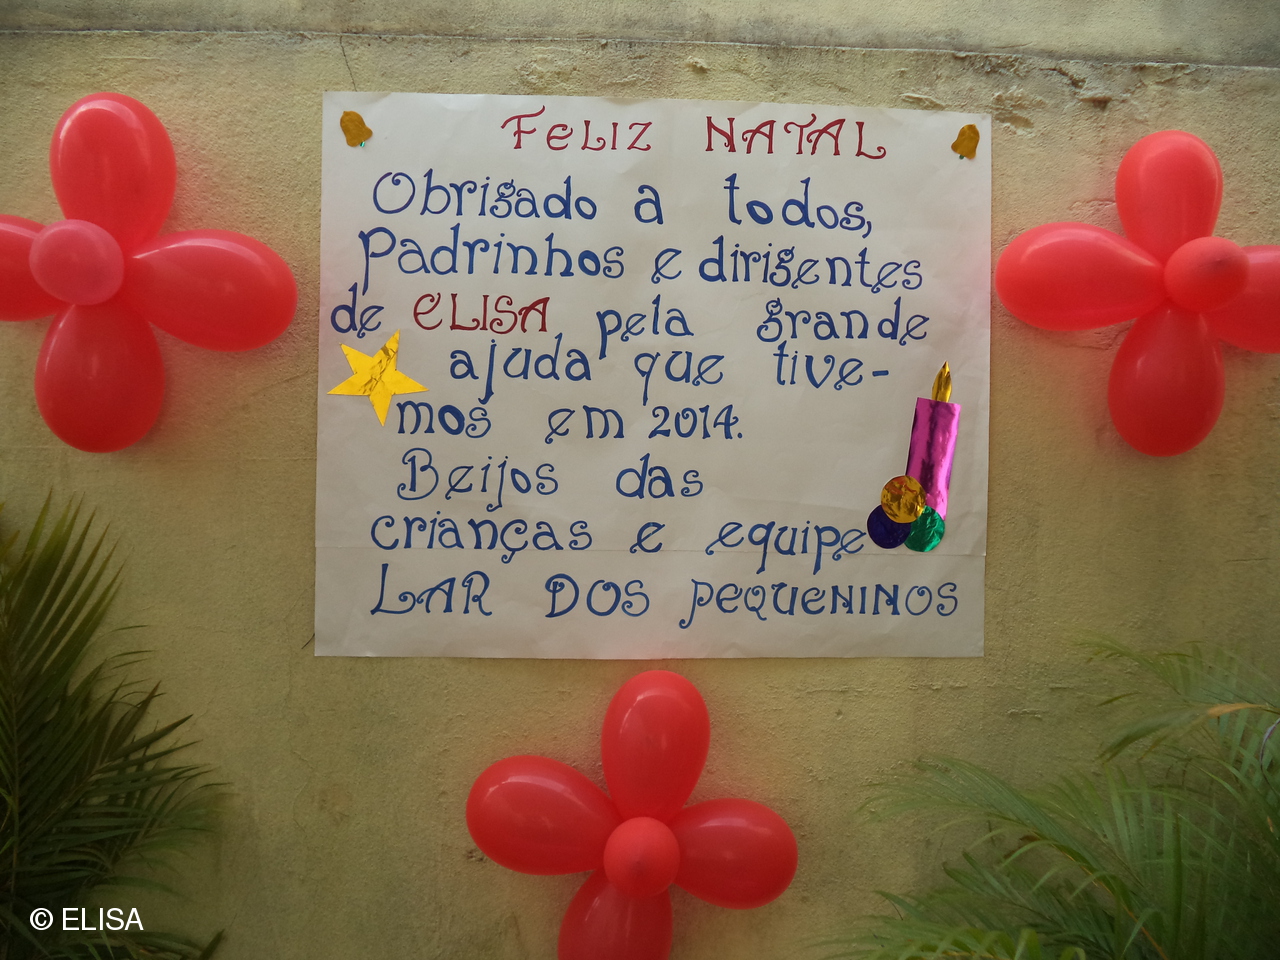 FeLIZ NATAL
Obrigado a todos,
Padrinhos e dirigentes
de ELISA pela grande
ajuda que tive-
mos em 2014.
Beijos das
crianças e equipe
LAR DOS PEQUENINOS
© ELISA